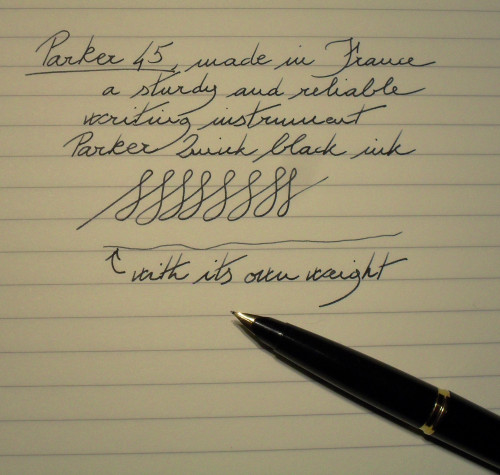 Parker 45, made in France
a sturdy and reliable
writing instrument
Parker Quink black ink
with its own weight